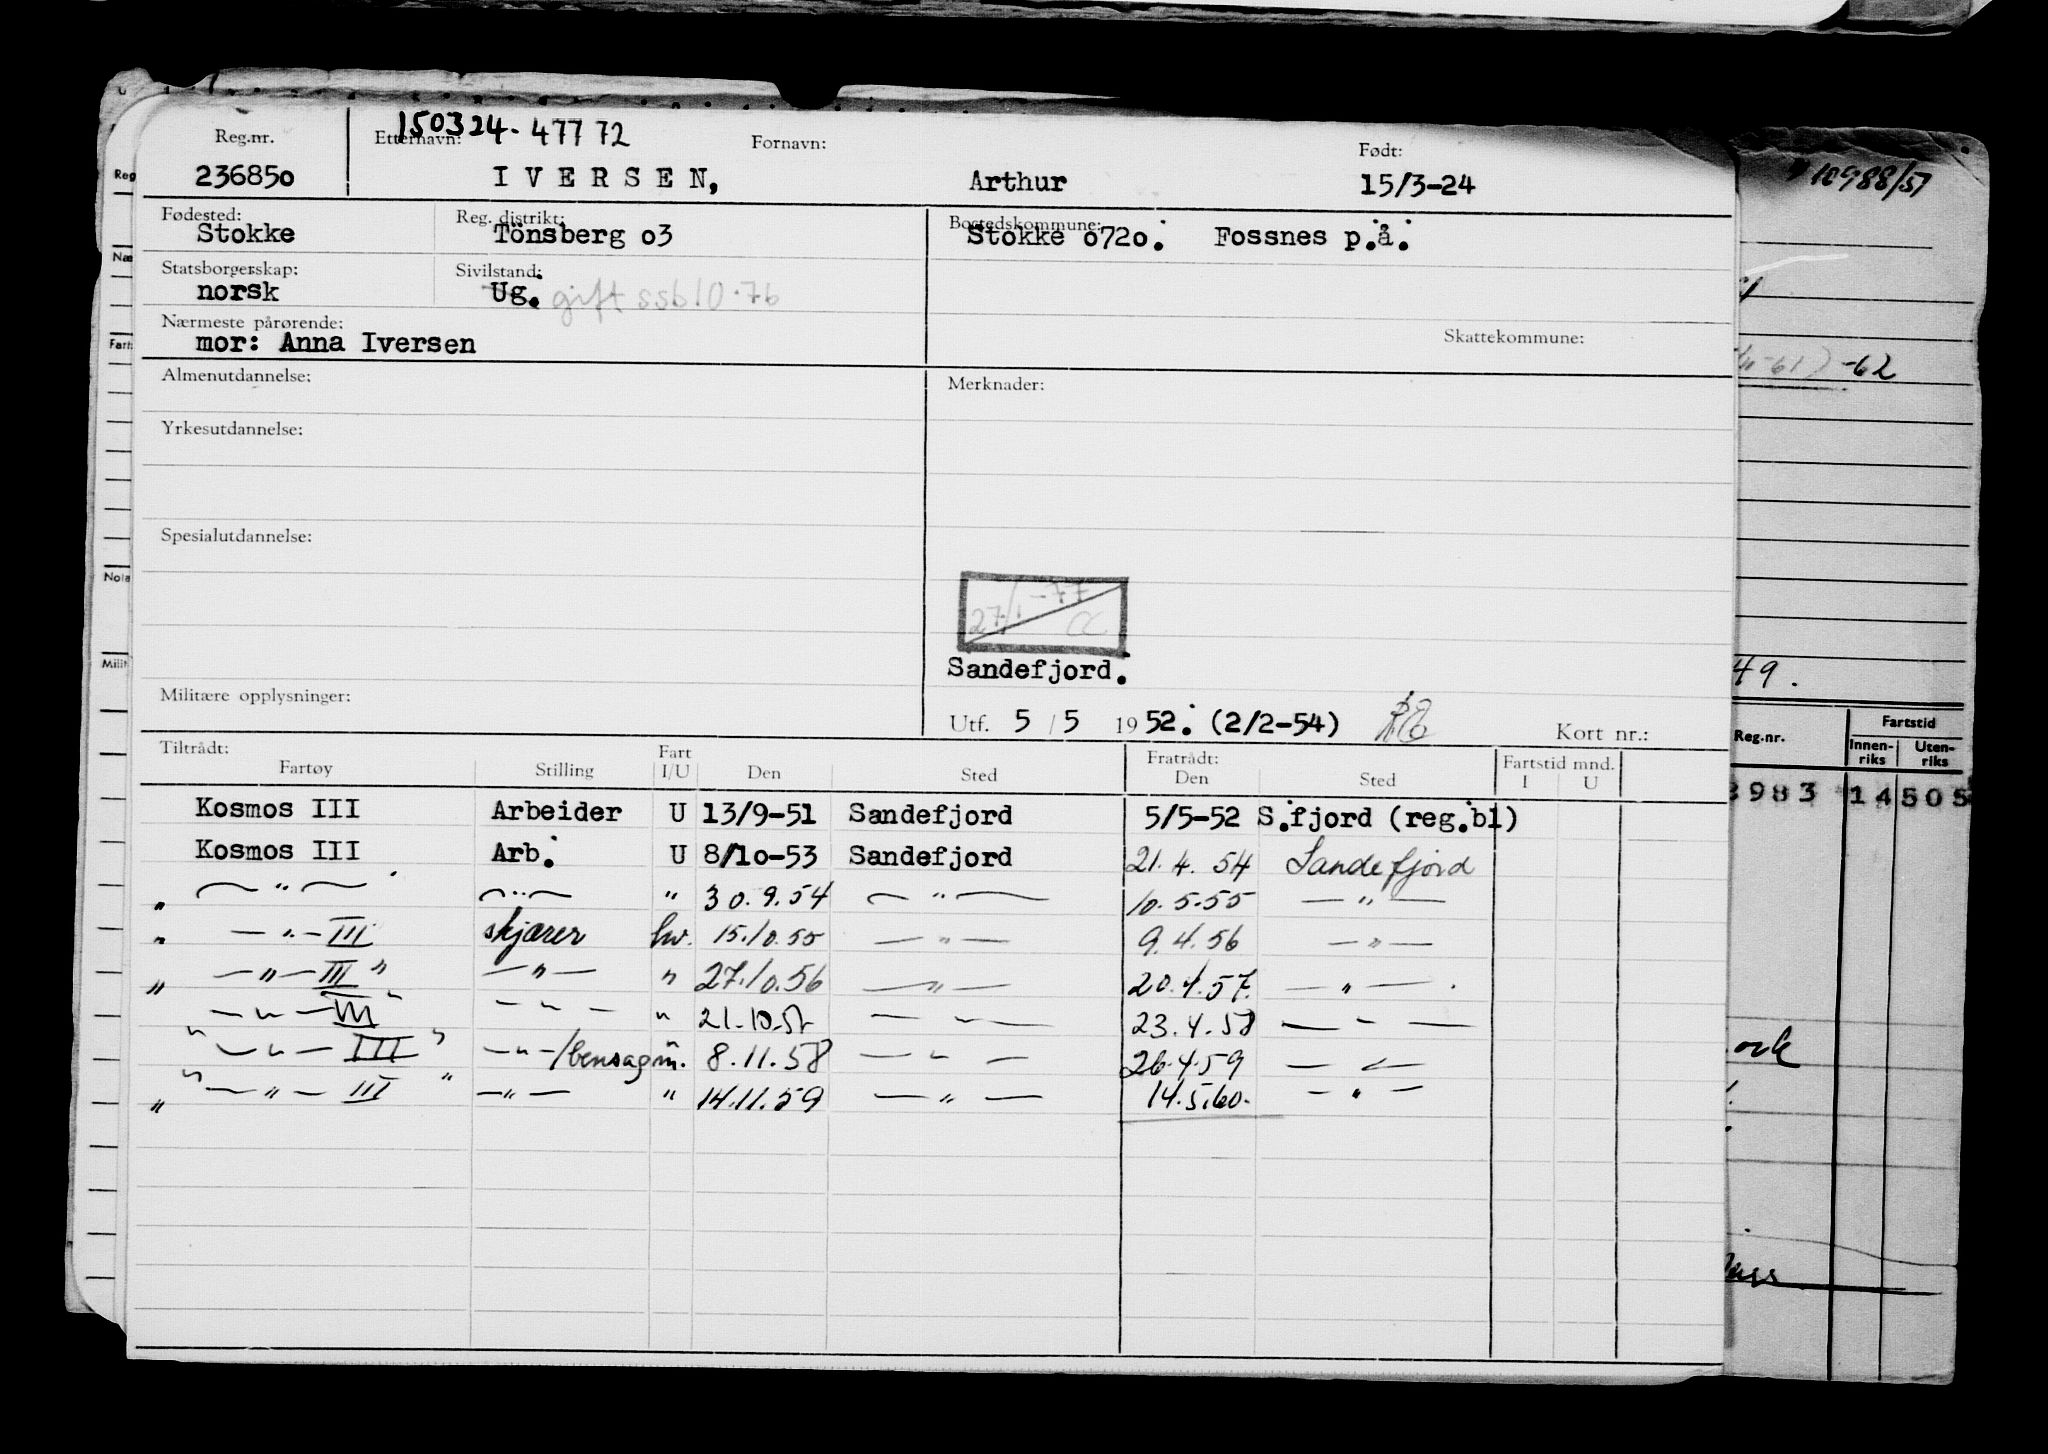 150324-47772
Reg.nr. Etternavn: Fornavn: Født:
236850 IVERSEN, Arthur 15/3-24
Fødested: Reg. distrikt: Bostedskommune:
Stokke Tönsberg o3 Stokke o72o. Fossnes p.å.
Statsborgerskap: Sivilstand:
norsk Ug. gift ssb 10.76
Nærmeste pårørende: Skattekommune:
mor: Anna Iversen
Almenutdannelse: Merknader:
Yrkesutdannelse:
Spesialutdannelse:
27/1-77
Sandefjord.
Militære opplysninger:
Utf. 5/5 1952. (2/2-54) Kort nr.:
Tiltrådt: Fratrådt:
Fartøy Stilling Fart I/U Den Sted Den Sted Fartstid mnd. I U
Kosmos III Arbeider U 13/9-51 Sandefjord 5/5-52 S.fjord (reg.bl)
Kosmos III Arb. U 8/1o-53 Sandefjord 21.4.54 Sandefjord
" — " — — " — " 30.9.54 — " — 10.5.55 — " —
" — " — III skjærer hv. 15.10.55 — " — 9.4.56 — " —
" — " — III " — " — " 27.10.56 — " — 20.4.57. — " —
— " — III " — " — " 21.10.57 — " — 23.4.58 — " —
" — " — III " — " —/bensagm. 8.11.58 — " — 26.4.59 — " —
" — " — III " — " — " 14.11.59 — " — 14.5.60. — " —
10988/51
-61) -62
49.
Reg.nr. Fartstid
Innen-riks Uten-riks
3983 14 505
Reg
Næ
Fart
Nola
Milit